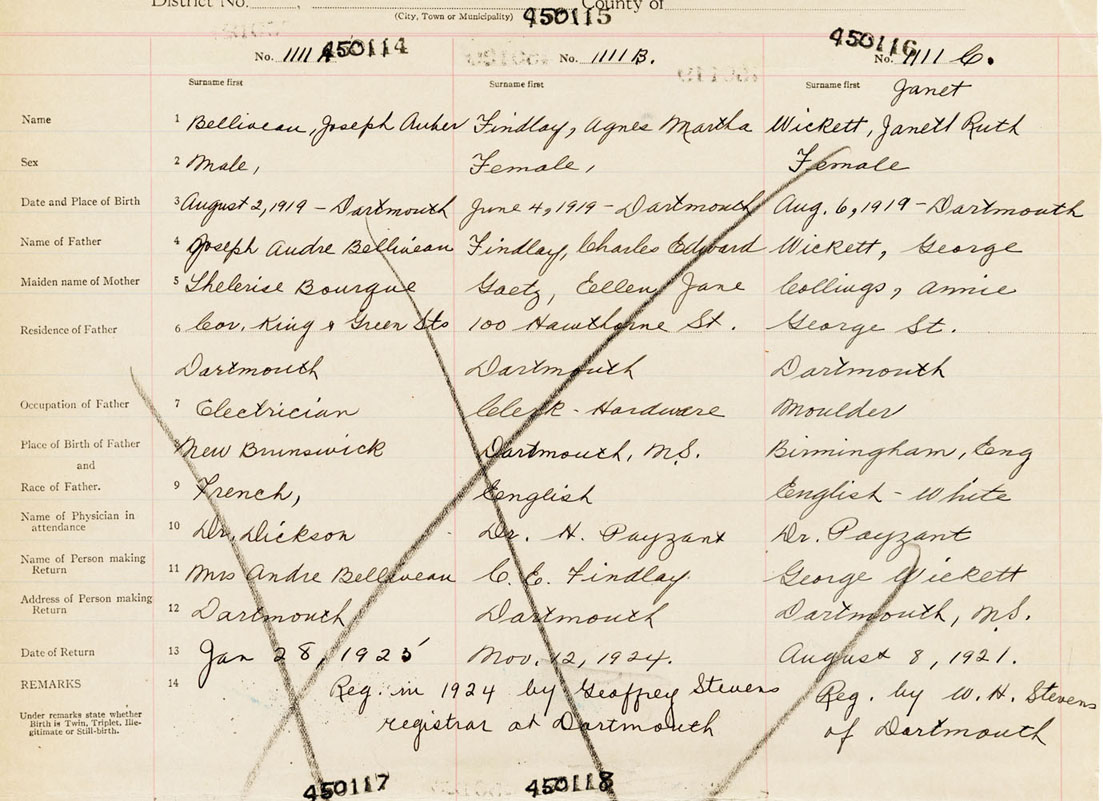 District No. , County of
(City, Town or Municipality) 450115
No. 1111 A 450114 No. 1111 B. 450116 No. 1111 C.
Surname first Surname first Surname first Janet
Name 1 Belliveau, Joseph Auber Findlay, Agnes Martha Wickett, Janett Ruth
Sex 2 Male, Female, Female
Date and Place of Birth 3 August 2, 1919 - Dartmouth June 4, 1919 - Dartmouth Aug. 6, 1919 - Dartmouth
Name of Father 4 Joseph Andre Belliveau Findlay, Charles Edward Wickett, George
Maiden name of Mother 5 Thelerise Bourque Gaetz, Ellen Jane Collings, Annie
Residence of Father 6 Cor. King & Green Sts 100 Hawthorne St. George St.
Dartmouth Dartmouth Dartmouth
Occupation of Father 7 Electrician Clerk - Hardware Moulder
Place of Birth of Father 8 New Brunswick Dartmouth, N.S. Birmingham, Eng
and
Race of Father. 9 French, English English - White
Name of Physician in
attendance 10 Dr. Dickson Dr. H. Payzant Dr. Payzant
Name of Person making
Return 11 Mrs Andre Belliveau C. E. Findlay. George Wickett
Address of Person making
Return 12 Dartmouth Dartmouth Dartmouth, N.S.
Date of Return 13 Jan 28, 1925 Nov. 12, 1924. August 8, 1921.
REMARKS 14 Reg. in 1924 by Geoffrey Stevens Reg. by W. H. Stevens
Under remarks state whether
Birth is Twin, Triplet, Ille-
gitimate or Still-birth. registrar at Dartmouth of Dartmouth
450117 450118